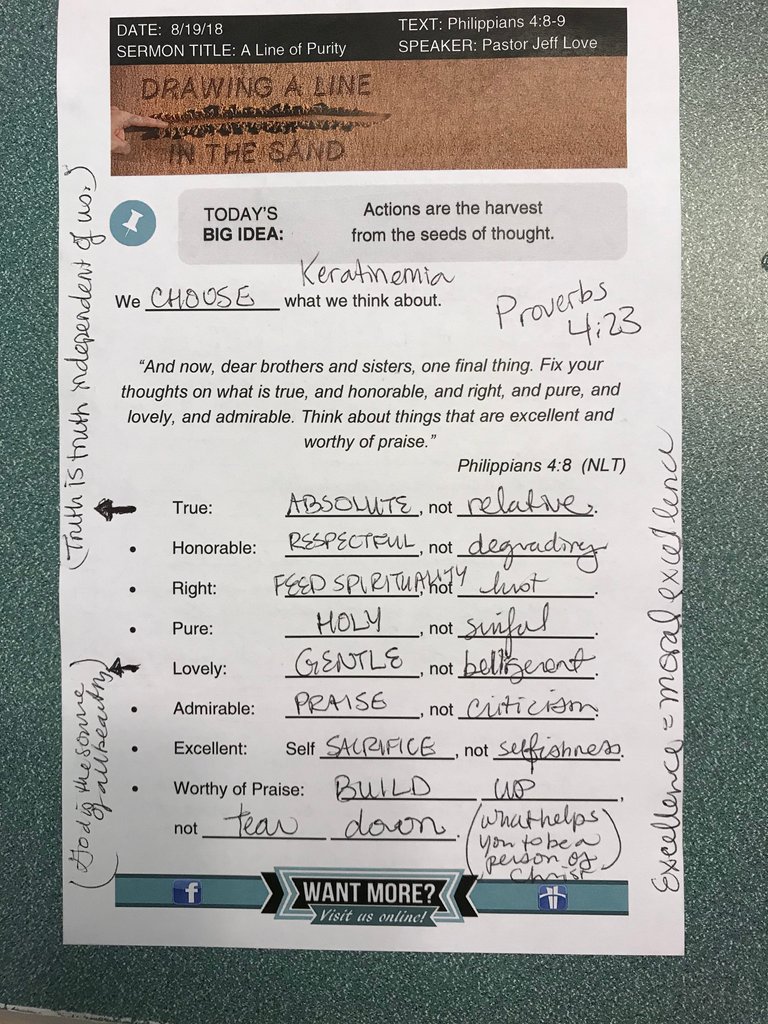 DATE: 8/19/18 TEXT: Philippians 4:8-9
SERMON TITLE: A Line of Purity SPEAKER: Pastor Jeff Love
DRAWING A LINE
IN THE SAND
TODAY'S
BIG IDEA:
Actions are the harvest
from the seeds of thought.
Keratinemia
We CHOOSE what we think about.
Proverbs
4:23
“And now, dear brothers and sisters, one final thing. Fix your
thoughts on what is true, and honorable, and right, and pure, and
lovely, and admirable. Think about things that are excellent and
worthy of praise.”
Philippians 4:8 (NLT)
True: ABSOLUTE, not relative.
• Honorable: RESPECTFUL, not degrading
• Right: FEED SPIRITUALITY, not hurt.
• Pure: HOLY, not sinful.
Lovely: GENTLE, not belligerent.
• Admirable: PRAISE, not criticism.
• Excellent: Self SACRIFICE, not selfishness.
• Worthy of Praise: BUILD UP,
not tear down.
(what helps
you to be a
person of
Christ
(Truth is truth independent of us.)
(God is the source
of all beauty)
Excellence = moral excellence
f
WANT MORE?
Visit us online!